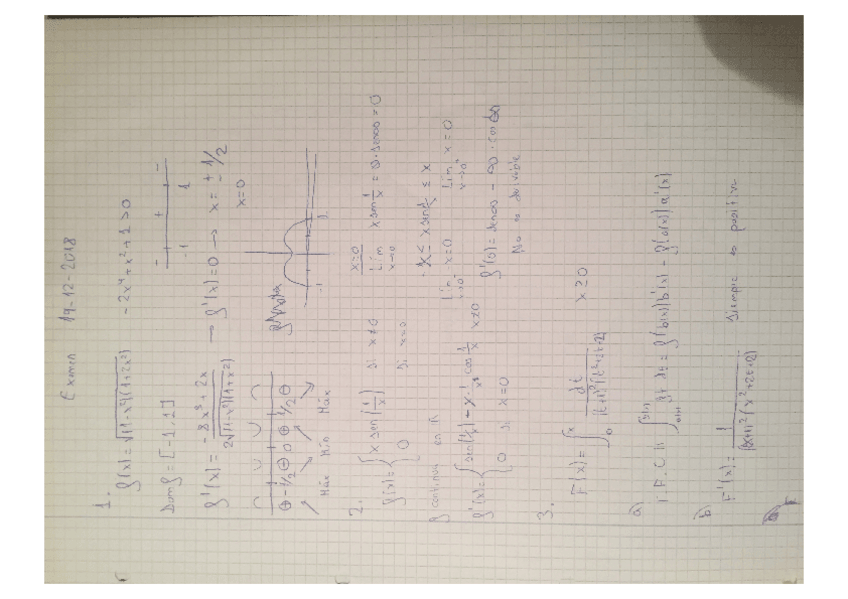 Examen 19-12-2018
1.
f(x) = √(1-x²)(1+2x²) -2x⁴+x²+1>0
Dom f = [-1,1] - + -
-1 1
f'(x) = -8x³+2x / 2√(1-x²)(1+x²) → f'(x)=0 → x = ± 1/2
x=0
⊕ -1/2 ⊖ 0 ⊕ 1/2 ⊖
Máx Mín Máx
-1 1
2.
f(x) = { x sen(1/x) si x≠0
0 si x=0
x=0
Lím x→0 x sen 1/x = 0·sen∞ = 0
f continua en ℝ
-x ≤ x sen 1/x ≤ x
Lím x→0⁻ -x=0 Lím x→0⁺ x=0
f'(x) = { sen(1/x) - x 1/x² cos 1/x x≠0
0 si x=0
f'(0) = sen∞ - ∞·cos∞
No es derivable
3.
F(x) = ∫₀ˣ dt / (t+1)²(t²+2t+2) x≥0
a)
T.F.C II ∫ f(t) dt = f(b(x))b'(x) - f(a(x))a'(x)
b)
F'(x) = 1 / (x+1)²(x²+2x+2) siempre es positiva